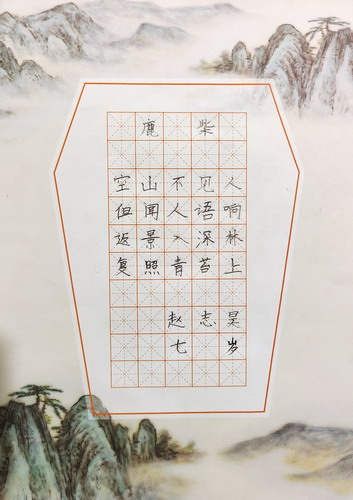 鹿柴
空山不见人
但闻人语响
返景入深林
复照青苔上
赵志昊
七岁